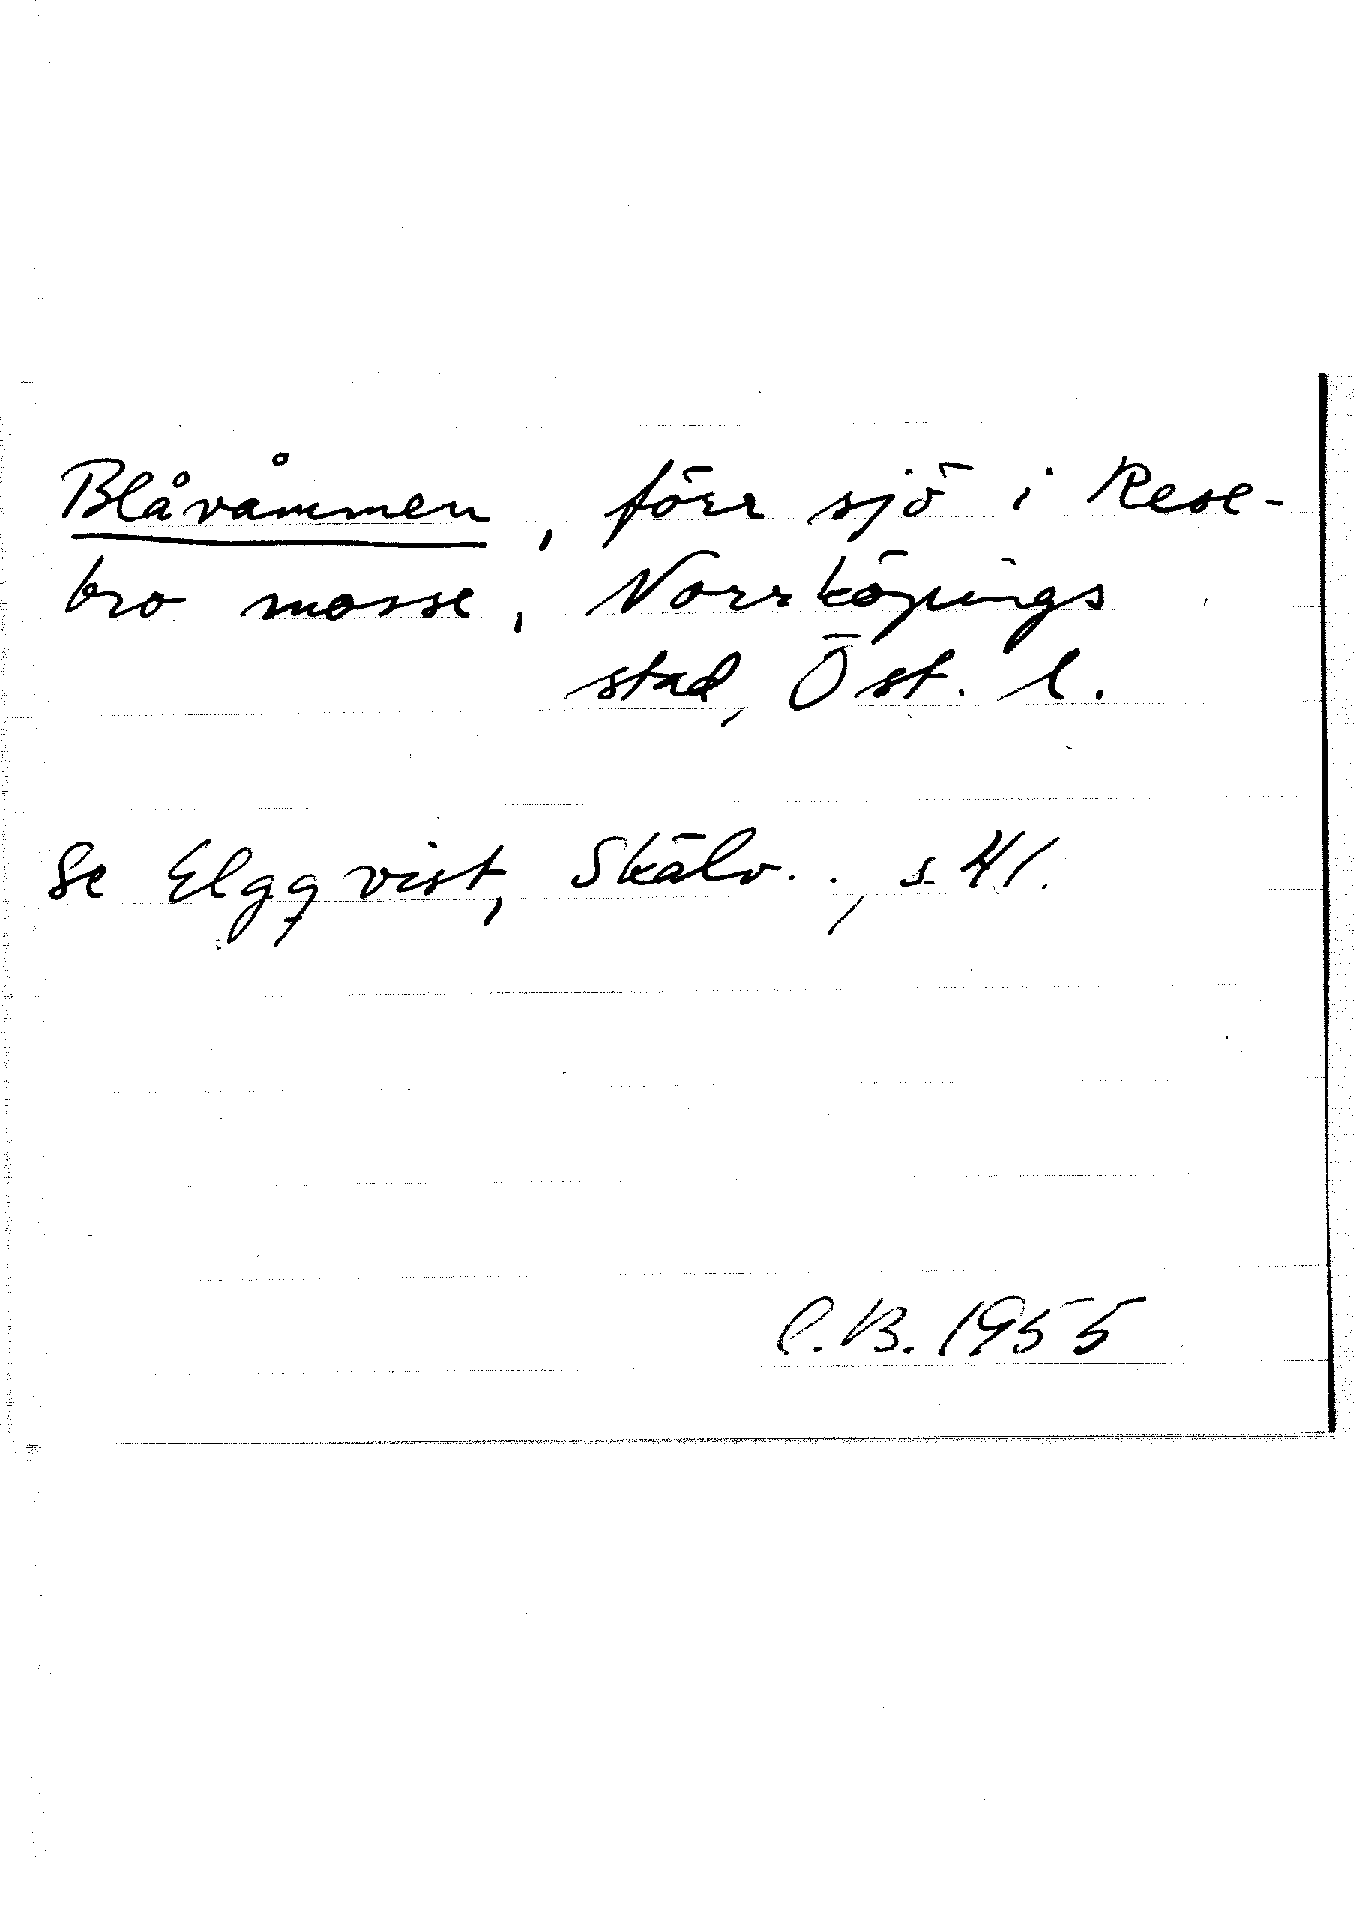 Blåvåmmen, förr sjö i Rese-
bro mosse, Norrköpings
stad, Öst. l.
Se Elgqvist, Skälv . . , s 41.
C.B. 1955